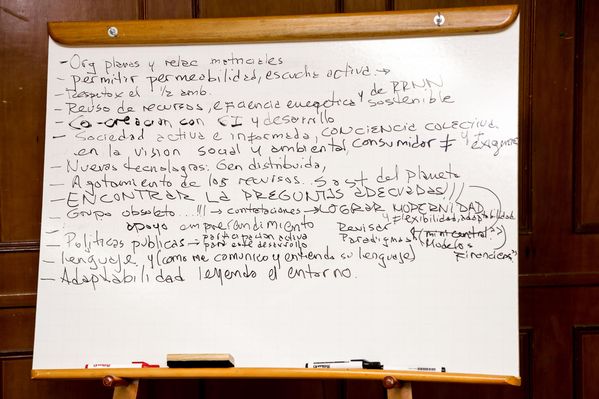 - Org planas y relac matriciales
- permitir permeabilidad, escucha activa →
- Respetox el 1/2 amb.
- Reuso de recursos, eficiencia energetica y de RRNN sostenible
- Co-creación con CI y desarrollo
- Sociedad activa e informada, conciencia colectiva
en la vision social y ambiental, consumidor ≠ y + exigente
- Nuevas tecnologias: Gen distribuida,
- Agotamiento de los recursos... Sost del planeta
- ENCONTRAR LA PREGUNTAS ADECUADAS!!!
- Grupo obsoleto...!!! → contrataciones → LOGRAR MODERNIDAD
y flexibilidad, adaptabilidad
- apoyo emprendimiento
Revisar Paradigmas ("mini central")
- Politicas públicas → participación activa
para este desarrollo
Modelos Financieros"
- lenguaje y (como me comunico y entiendo su lenguaje)
- Adaptabilidad leyendo el entorno.